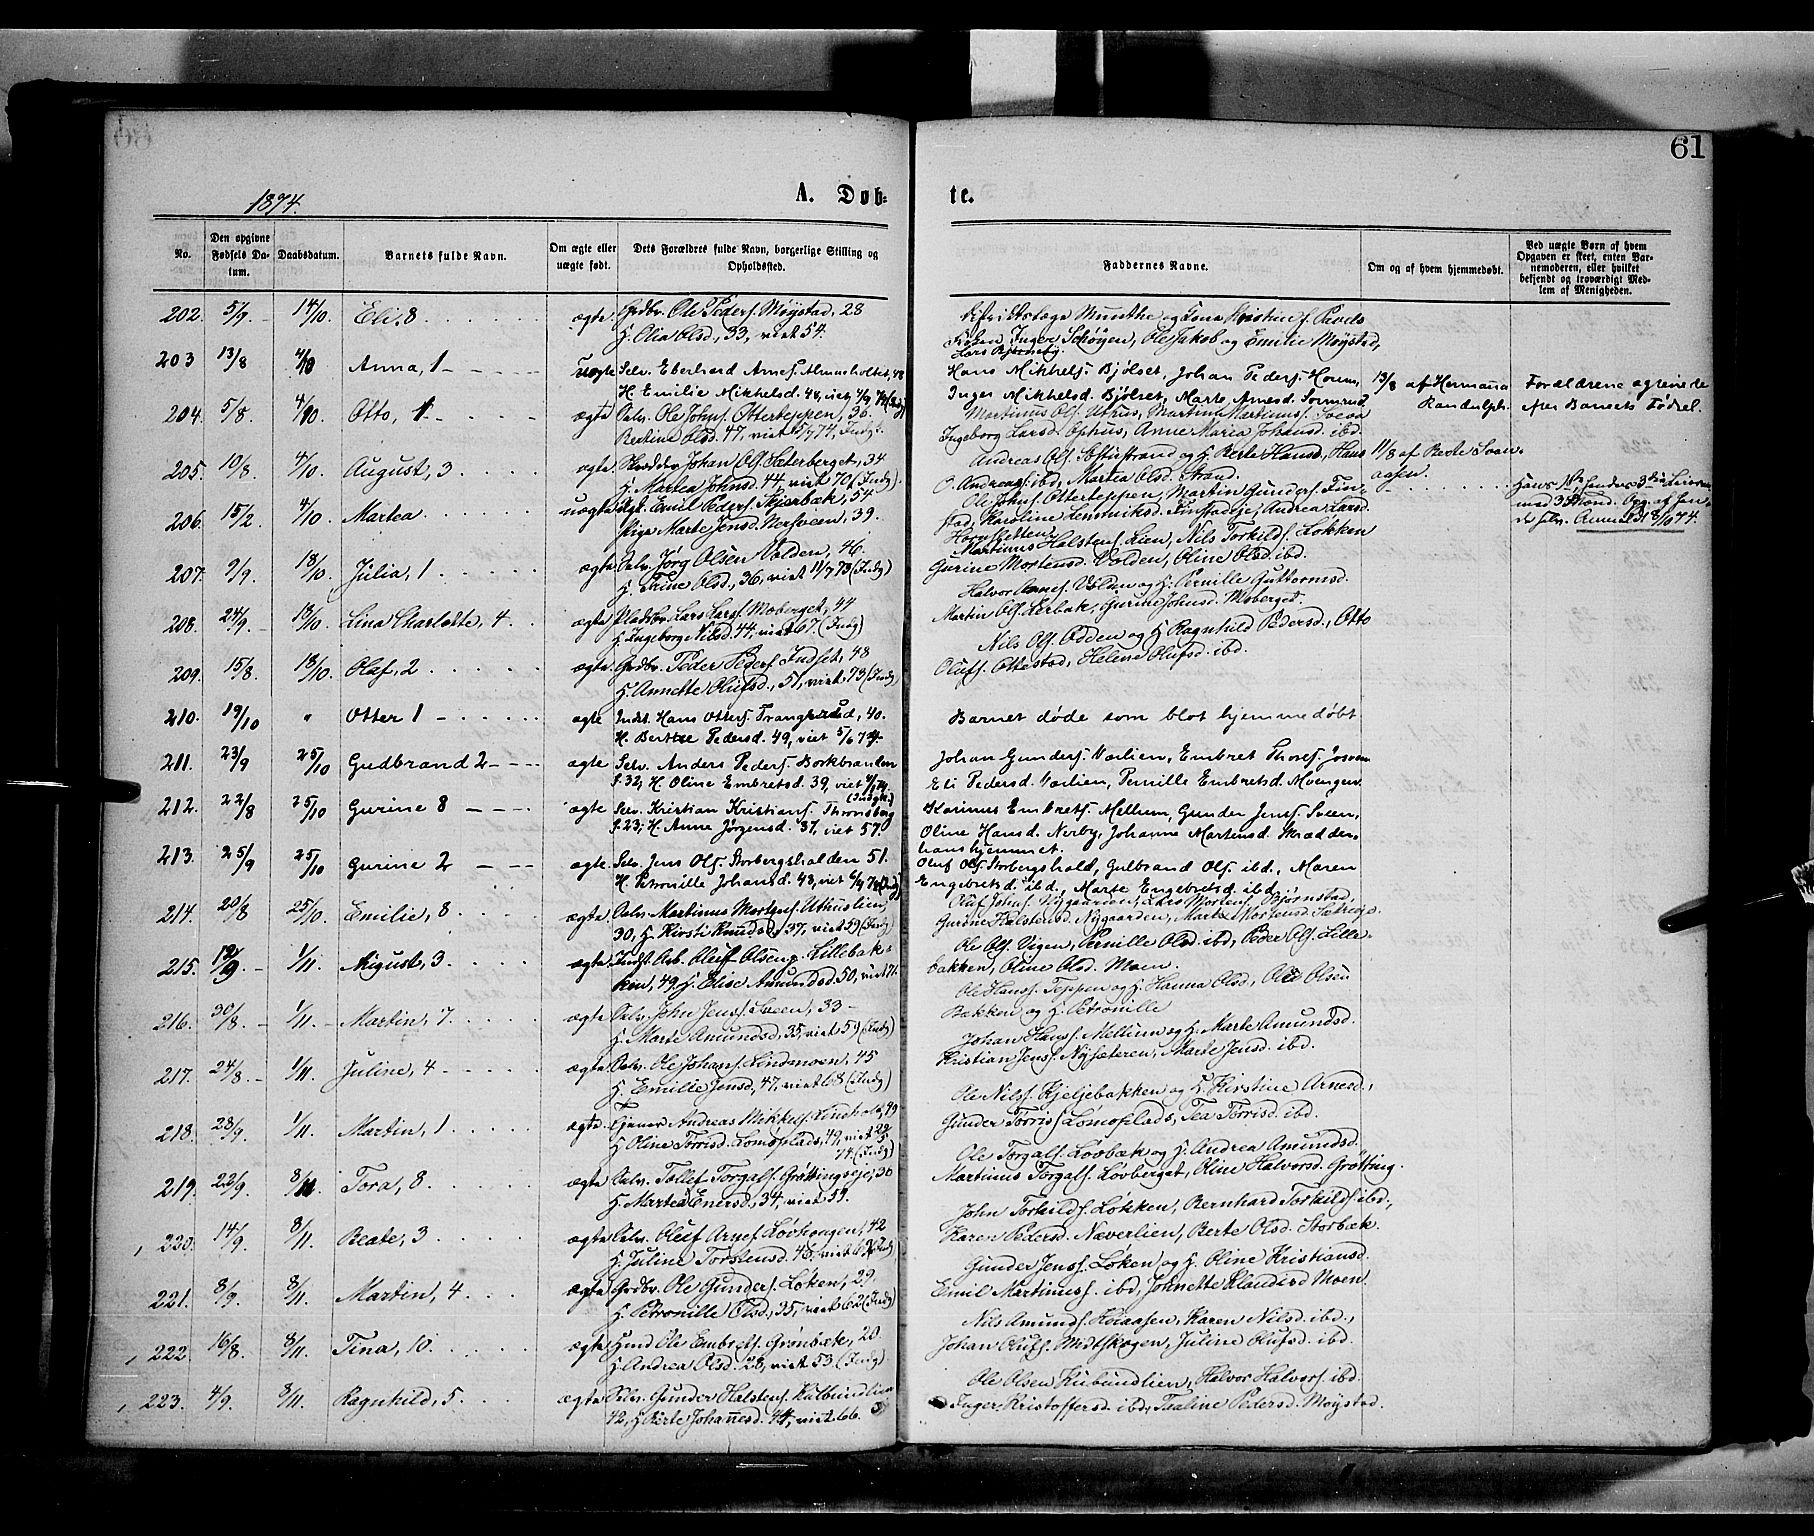 61
1874.
A. Døb-
te.
No.
Den opgivne Fødsels Da-tum.
Daabsdatum.
Barnets fulde Navn.
Om ægte eller uægte født.
Dets Forældres fulde Navn, borgerlige Stilling og Opholdssted.
Faddernes Navne.
Om og af hvem hjemmedøbt.
Ved uægte Børn af hvem Opgaven er skeet, enten Bar-nemoderen, eller hvilket bekjendt og troværdigt Med-lem af Menigheden.
202. 5/9 14/10 Eli, 8 ægte Grdbr. Ole Peders. Møystad, 28
H. Olia Olsd., 33, viet 54.
Inger Schøyen, Ole Jakob og Emilie Møystad,
203 13/8 Anna, 1 uægte Selv. Eberhard Arnes. Almeholtet, 48
H. Emilie Mikkelsd. 48, viet
Hans Mikkels. Bjølset, Johan Peders.
Inger Mikkelsd. Bjølset, Marte Arnesd.
13/8 af Hermana Randulph.
Forældrene ægtevie de efter Barnets Fødsel.
204. 5/8 4/10 Otto, 1 ægte Selv. Ole Johns. Ottersteppen, 36.
Bertine Olsd. 47, viet
Martinus Ols. Uthus, Martin Martinus.
Ingeborg Larsd. Ophus, Anne Maria Johansd. ibd.
205. 10/8 4/10 August, 3 ægte Johan Ols. Sæterberget, 34
H. Martea Johnsd. 44, viet 70 (Indg)
Andreas Ols. Berte Hansd, Hans
O. Andreas. ibd, Martea Olsd. Strand.
11/8 af Berte Svaen-aasen.
206. 15/2 4/10 Martea uægte Emil Peders. Skjærbæk, 54
Pige Marte Jensd. Nersveen, 39.
Ole Johns. Ottersteppen, Martin Gunders.
Andrea Larsd.
Anmeldt 8/10 74.
207. 9/9 18/10 Julia, 1 ægte Selv. Jørg Olsen Volden, 46
H. Trine Olsd., 36, viet 11/7 73 (Indg)
Martinus Halstens. Lien, Nils Torkilds. Løkken
Gurine Mortensd. Volden, Oline Olsd. ibd.
208. 24/9 18/10 Lina Charlotte, 4 ægte Pladsbr. Lars Lars. Moberget, 44
H. Ingeborg Nilsd. 44, viet 67. (Indg)
Halvor Arnes. Volden og H. Pernille Guttormsd.
Martin Ols. Lerbak, Gurine Johnsd. Moberget.
209. 15/8 18/10 Olaf, 2 ægte Grdbr. Peder Peders. Indset, 48
H. Annette Olufsd., 51, viet 73 (Indg)
Nils Ols. Odden og H. Ragnhild Pedersd., Otto
Olufs. Ottestad, Helene Olufsd. ibd.
210. 19/10 " Otter 1 ægte Indst. Hans Otters. Trangsrud, 40.
H. Berthe Pedersd. 49, viet 5/6 74
Barnet døde som blot hjemmedøbt
211. 23/9 25/10 Gudbrand 2 ægte Selv. Anders Peders. Borkbranden
f. 32, H. Oline Embretsd. 39, viet
Johan Gunders. Vælien, Embret Thores.
Eli Pedersd. Vælien, Pernille Embretsd. Moengen
212. 22/8 25/10 Gurine 8 ægte Selv. Kristian Kristians. Thronsberg
f. 23, H. Anne Jørgensd. 37, viet 57.
Karinus Embrets. Mellum, Gunder Jens. Sveen,
Oline Hansd. Nerby, Johanne Martensd.
213. 25/9 25/10 Gurine 2 ægte Selv. Jens Ols. Storbergshalden 51.
H. Petronille Johansd. 43, viet
Oluf Ols. Storbergshald, Gulbrand Ols. ibd., Maren
Engebretsd. ibd., Marte Engebretsd. ibd.
214. 20/8 25/10 Emilie, 8 ægte Selv. Martinus Mortens. Uthuslien
30, H. Kirsti Knudsd., 37, viet 59 (Indg)
Oluf Johns. Nygaarden, Lars Mortens. Bjørnstad,
Gurine Halstensd. Nygaarden,
215. August, 3 ægte Oluf Olsen Lillebak-
ken, 49, H. Elise Amundsd. 50, viet 71.
Ole Ols. Vigen, Pernille Olsd. ibd, Peder Ols. Lille-
bakken, Oline Olsd. Moen.
216. 30/8 1/11 Martin, 7. ægte Selv. John Jens. Sveen, 33
H. Marte Amundsd., 35, viet 59 (Indg)
Ole Hans. Teppen og H. Hanna Olsd, Ole Olsen
Bakken og H. Petronille
217. 24/8 1/11. Juline, 4 ægte Selv. Ole Johans. Lindmoen, 45
H. Emilie Jensd., 47, viet 68 (Indg)
Johan Hans. Mellum og H. Marte Amundsd.
Kristian Jens. Nysæteren, Marte Jensd. ibd.
218. 28/9 1/11. Martin, 1 ægte Tjener Andreas Mikkels. Lindholt, 49
H. Oline Torrisd. Lømosplads, 49, viet
74. (Indg)
Ole Nils. Kjeljebakken og H. Kirstine Arnesd.,
Gunder Torris. Lømosplads, Tea Torrisd. ibd.
219. 22/9 8/11 Tora, 8. ægte Selv. Tollef Torgals. Grøttingseje, 36
H. Martea Enersd., 34, viet 59.
Ole Torgals. Løvbæk og H. Andrea Amundsd.
Martinus Torgals. Løvberget, Oline Halvorsd. Grøtting.
220. 14/9 8/11. Beate, 3 ægte Selv. Oluf Arnes. Løvhaugen, 42
H. Juline Torstensd. 46, viet
John Torkilds. Løkken, Bernhard Torkilds. ibd.,
Karen Pedersd. Næverlien, Berte Olsd. Storbæk.
221. 8/9 8/11. Martin, 4 ægte Grdbr. Ole Gunders. Løken, 29
H. Petronille Olsd., 35, viet 62 (Indg)
Gunder Jens. Løken og H. Oline Kristiansd.
Emil Martinus. ibd, Johnette Klausd. Moen.
222. 16/8 8/11. Tina, 10. ægte Ole Embrets. Grønbæk, 20
H. Andrea Olsd. 28, viet 53 (Indg)
Nils Amunds. Koiaasen, Karen Nilsd. ibd.,
Johan Olufs. Midtskogen, Juline Olufsd. ibd.
223. 4/9. 8/11. Ragnhild, 5 ægte Selv. Gunder Halstens. Kulbundlien
42, H. Berte Johannesd. 44, viet 66.
Ole Olsen Kubundlien, Halvor Halvors. ibd.
Inger Kristoffersd. ibd., Pedersd. Møystad.